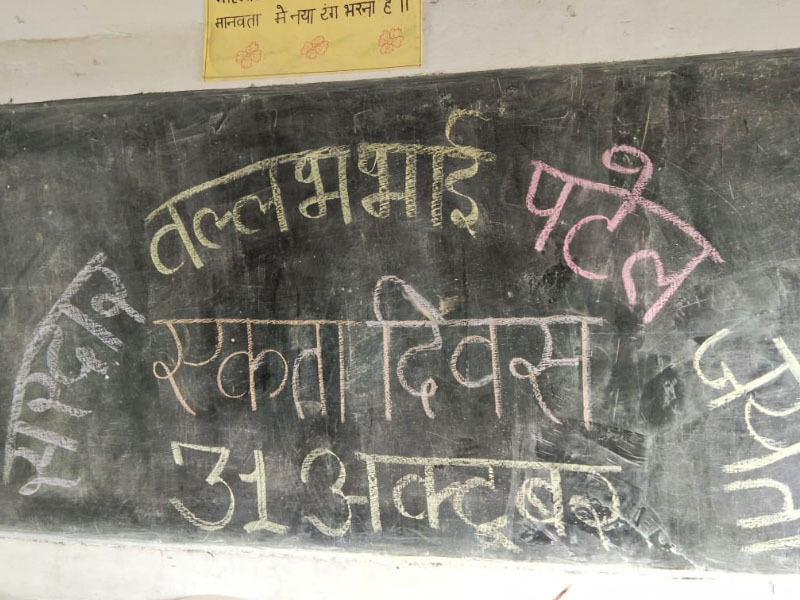 मानवता में नया रंग भरना है॥
सरदार वल्लभभाई पटेल
एकता दिवस
31 अक्टूबर